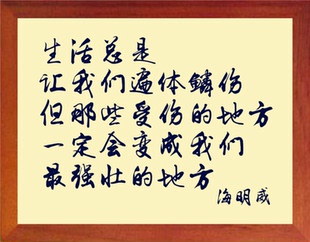 生活总是
让我们遍体鳞伤
但那些受伤的地方
一定会变成我们
最强壮的地方
海明威